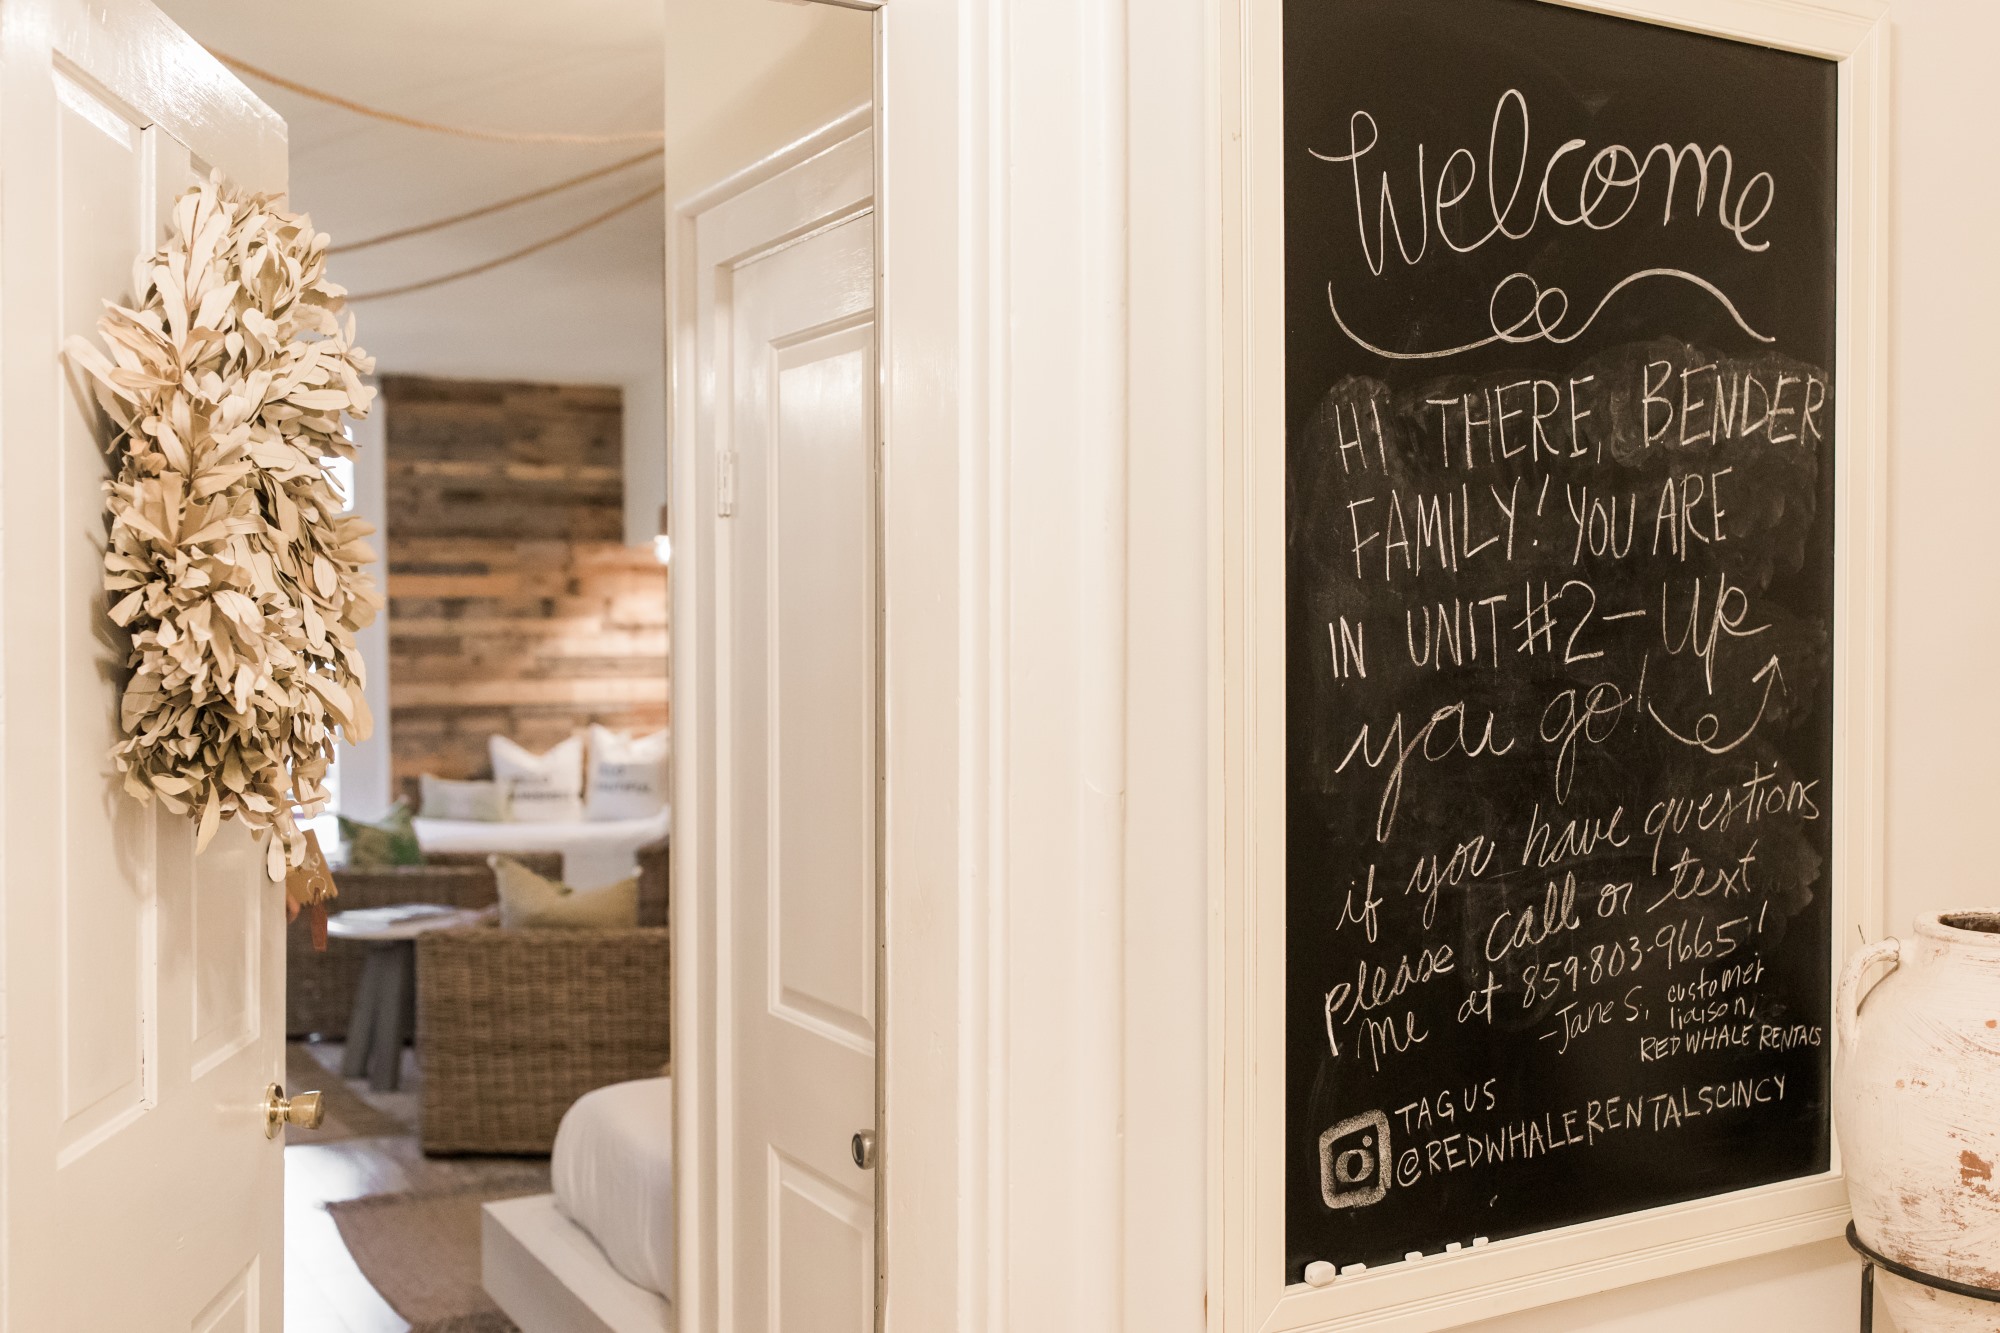 Welcome
HI THERE, BENDER
FAMILY! YOU ARE
IN UNIT #2 - Up
you go!
if you have questions
please call or text
me at 859-803-9665!
-Jane S, customer
liaison,
RED WHALE RENTALS
TAG US
@REDWHALERENTALSCINCY